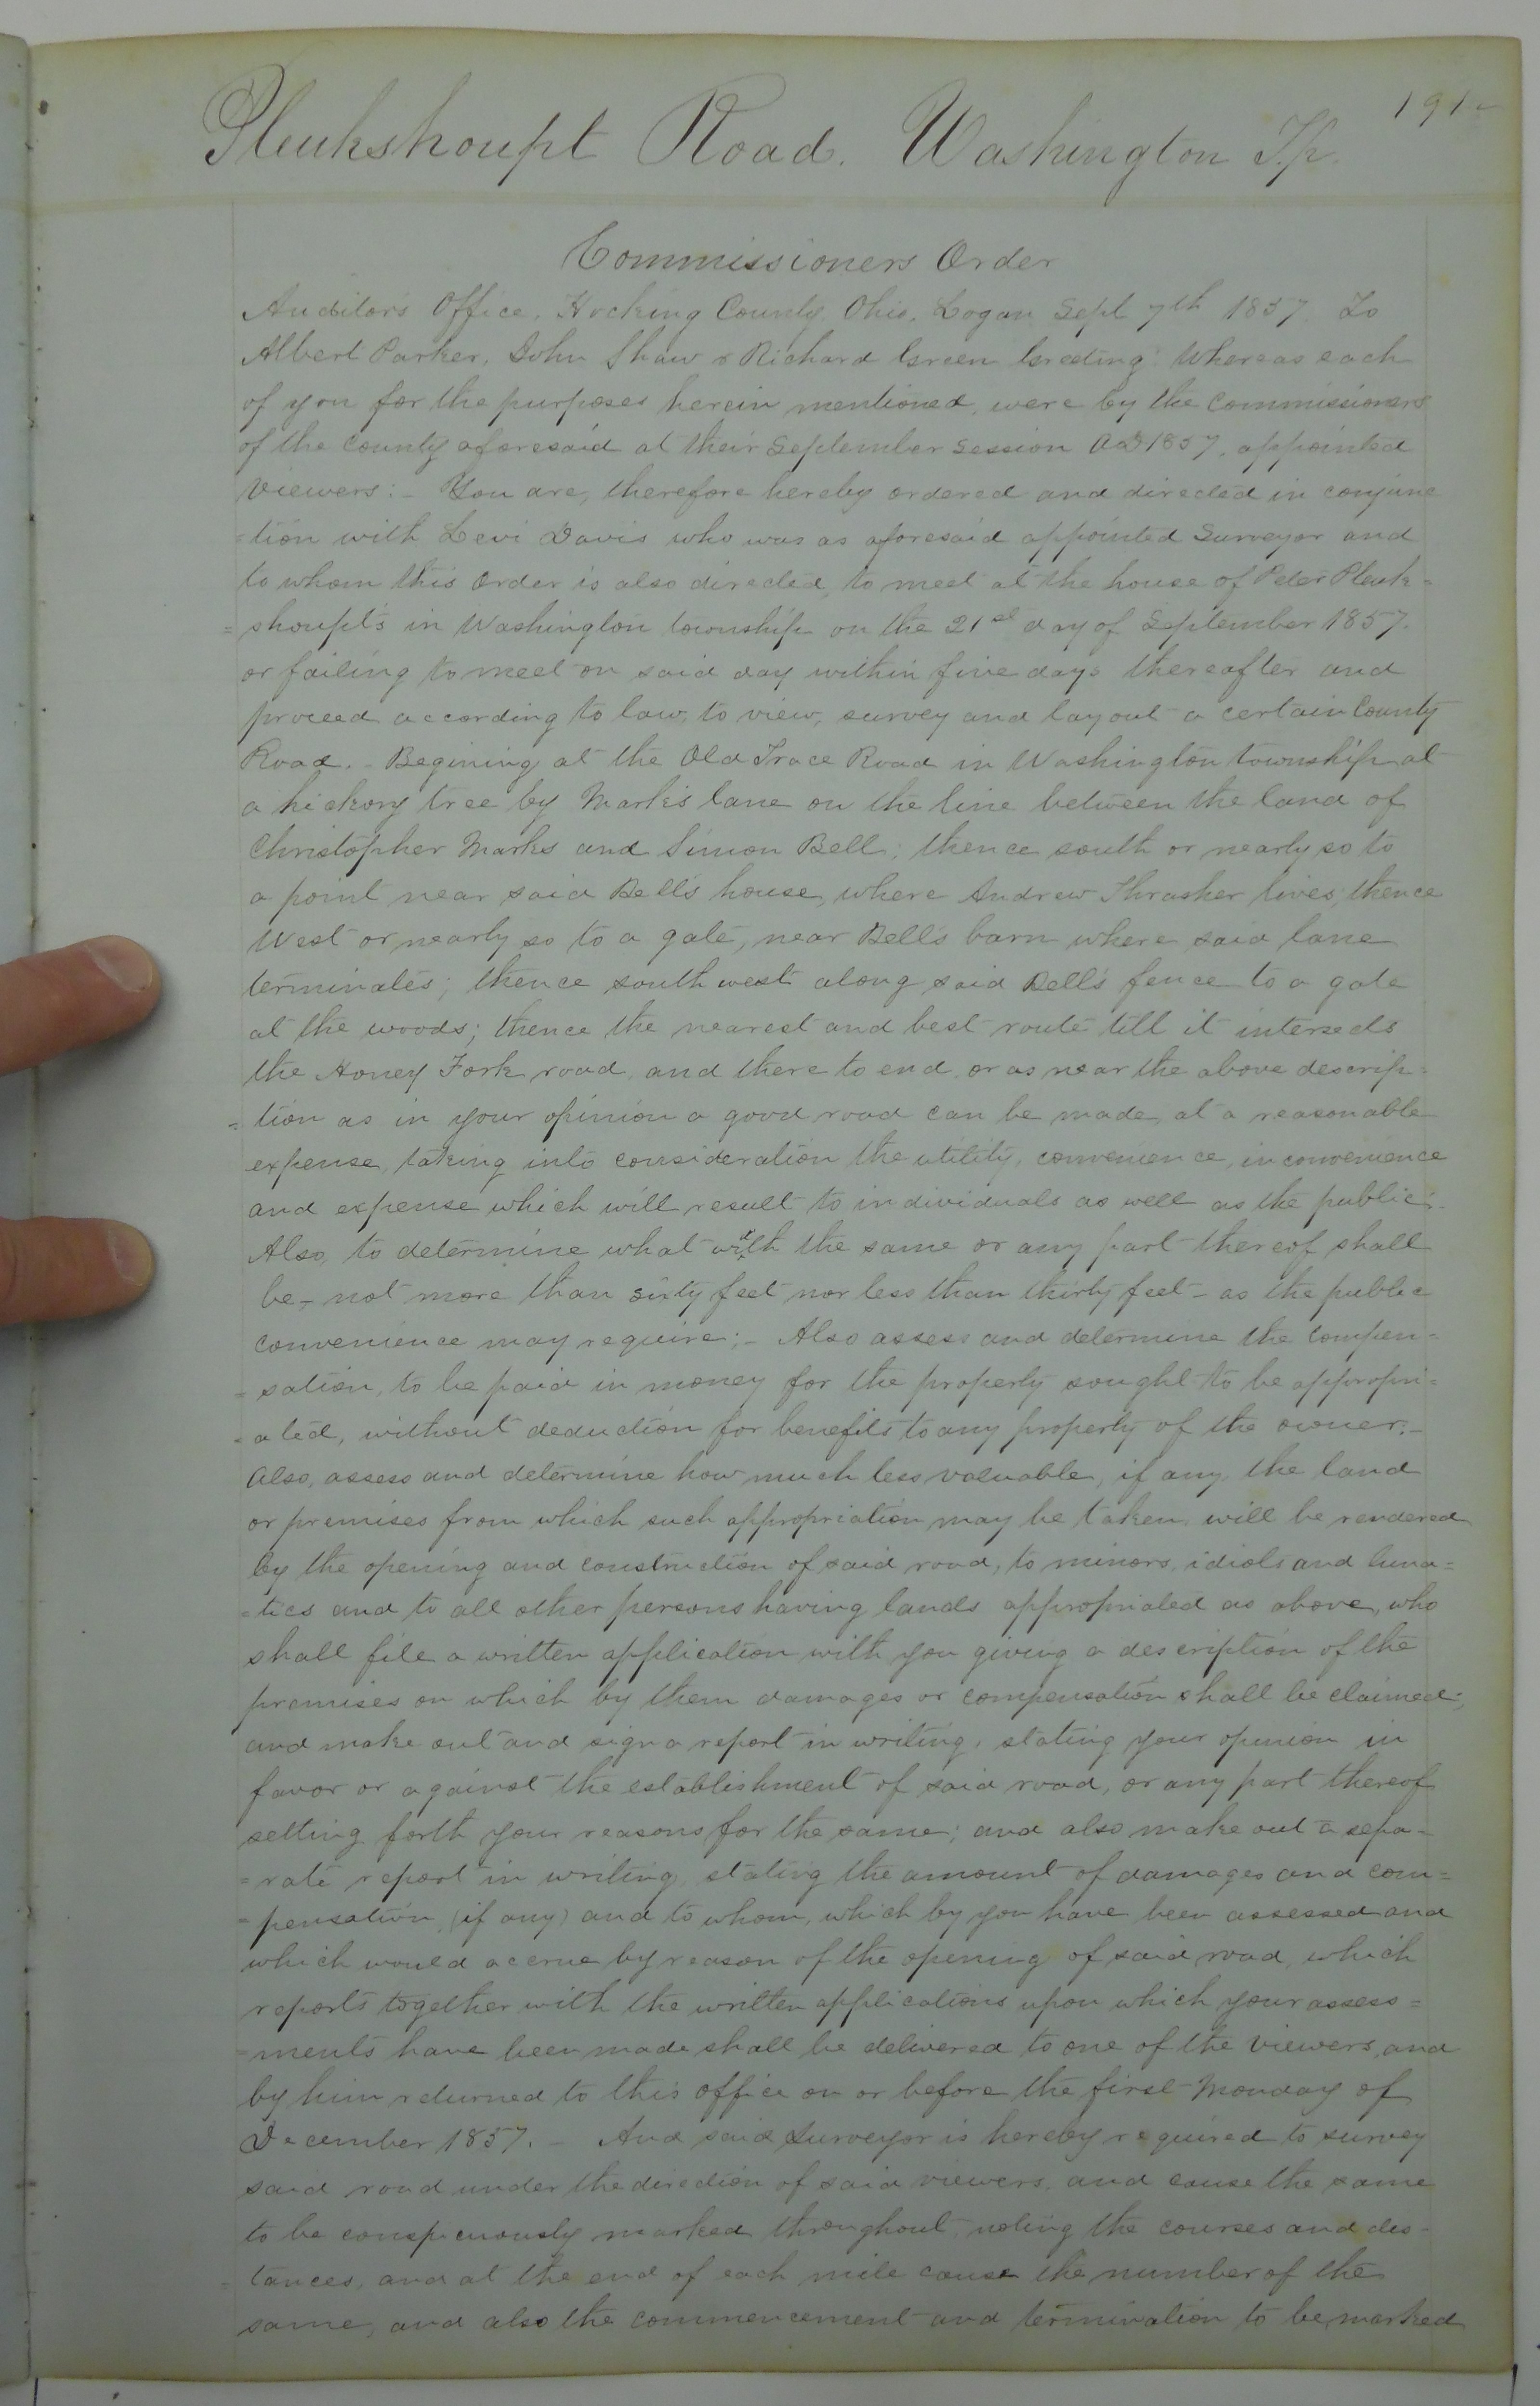 191
Pleukshoupt Road. Washington Tp.
Commissioners Order
Auditor's Office, Hocking County, Ohio, Logan Sept 7th 1857. To
Albert Parker, John Shaw & Richard Green Greeting: Whereas each
of you for the purposes herein mentioned, were by the Commissioners
of the County aforesaid at their September Session AD 1857, appointed
Viewers:- You are, therefore hereby ordered and directed in conjunc
=tion with Levi Davis who was as aforesaid appointed Surveyor and
to whom this Order is also directed, to meet at the house of Peter Pleuk=
=shoupt's in Washington township on the 21st day of September 1857.
or failing to meet on said day within five days thereafter and
proceed according to law, to view, survey and lay out a certain County
Road. - Begining at the Old Trace Road in Washington township at
a hickory tree by Mark's lane on the line between the land of
Christopher Marks and Simon Bell; thence south or nearly so to
a point near said Bell's house, where Andrew Thrasher lives, thence
West or nearly so to a gate, near Bell's barn where said lane
terminates; thence south west along said Bell's fence to a gate
at the woods; thence the nearest and best route till it intersects
the Honey Fork road, and there to end, or as near the above descrip=
=tion as in your opinion a good road can be made, at a reasonable
expense, taking into consideration the utility, convenience, inconvenience
and expense which will result to individuals as well as the public.
Also, to determine what width the same or any part thereof shall
be - not more than sixty feet nor less than thirty feet - as the public
convenience may require:- Also assess and determine the compen=
=sation, to be paid in money for the property sought to be appropri=
=ated, without deduction for benefits to any property of the owner:-
Also, assess and determine how much less valuable, if any, the land
or premises from which such appropriation may be taken, will be rendered
by the opening and construction of said road, to minors, idiots and luna=
=tics and to all other persons having lands appropriated as above, who
shall file a written application with you giving a description of the
premises on which by them damages or compensation shall be claimed;
and make out and sign a report in writing, stating your opinion in
favor or against the establishment of said road, or any part thereof
setting forth your reasons for the same; and also make out a sepa=
=rate report in writing, stating the amount of damages and com=
=pensation, (if any) and to whom, which by you have been assessed and
which would accrue by reason of the opening of said road, which
reports together with the written applications upon which your assess=
=ments have been made shall be delivered to one of the viewers, and
by him returned to this office on or before the first Monday of
December 1857. - And said Surveyor is hereby required to survey
said road under the direction of said viewers, and cause the same
to be conspicuously marked throughout, noting the courses and dis-
=tances, and at the end of each mile cause the number of the
same, and also the commencement and termination to be marked